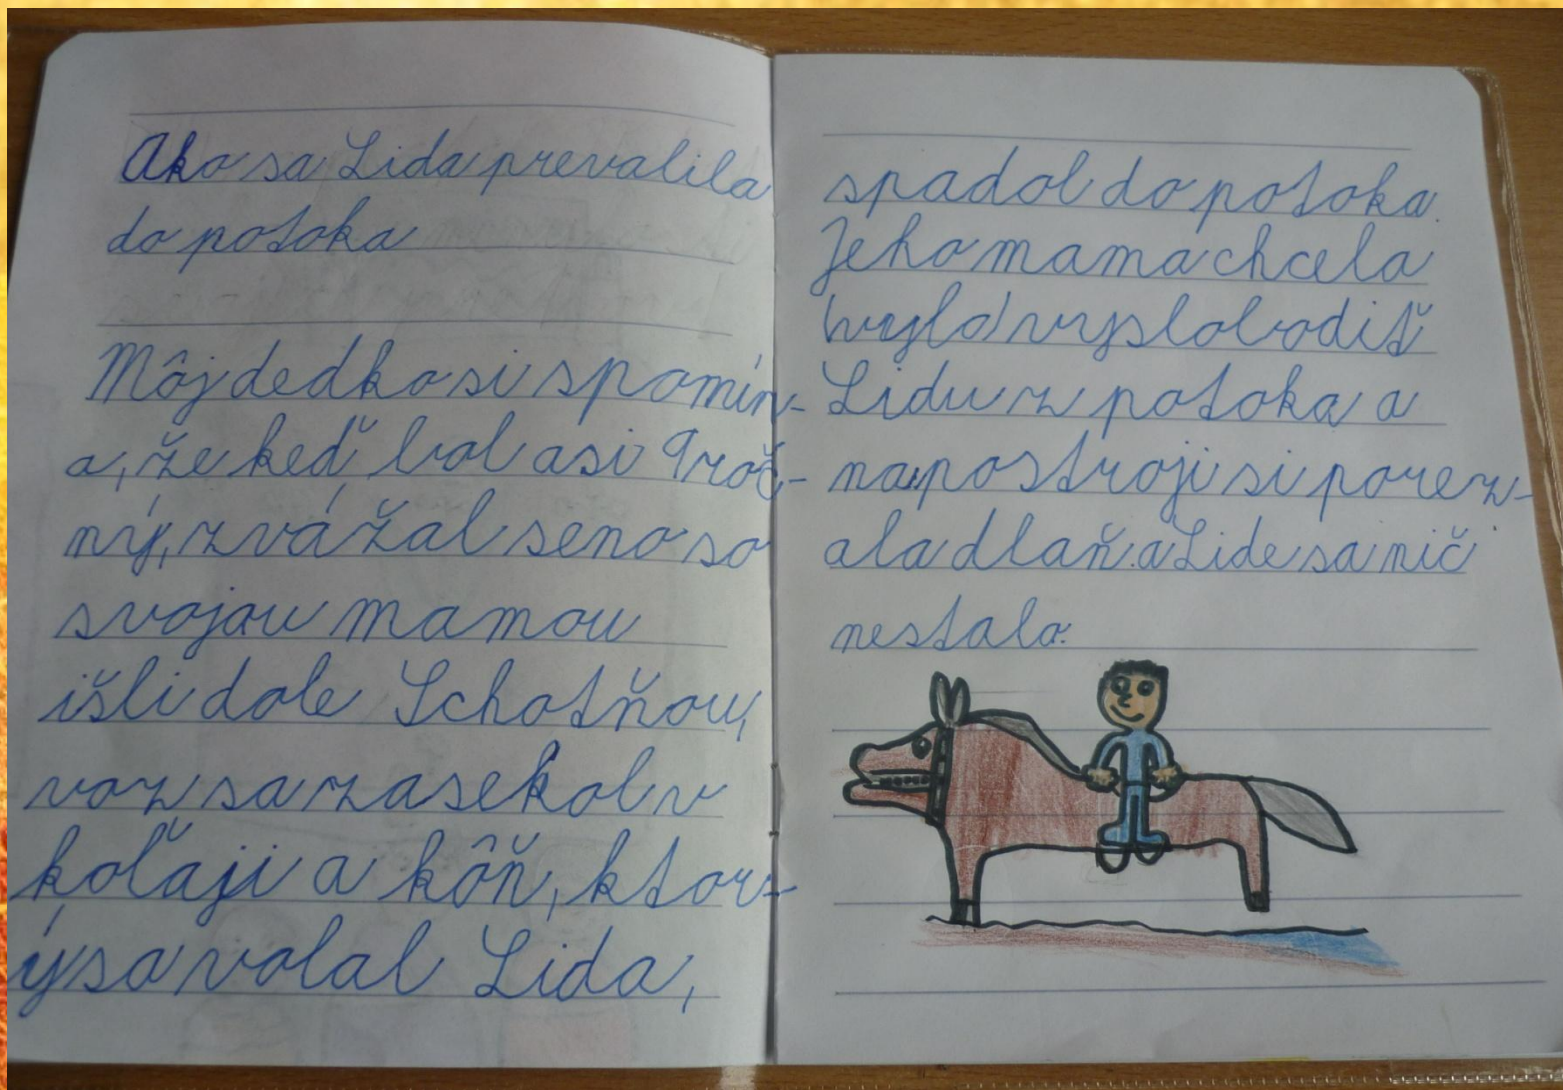 Ako sa Lida prevalila
do potoka
Môj dedko si spomín-
a, že keď bol asi 9 roč-
ný, zvážal seno so
svojou mamou
išli dole Lchotňou,
voz sa zasekol v
koľaji a kôň, ktor-
ý sa volal Lida,
spadol do potoka.
Jeho mama chcela
(vylo) vyslobodiť
Lidu z potoka a
na postroji si porez-
ala dlaň a Lide sa nič
nestalo.